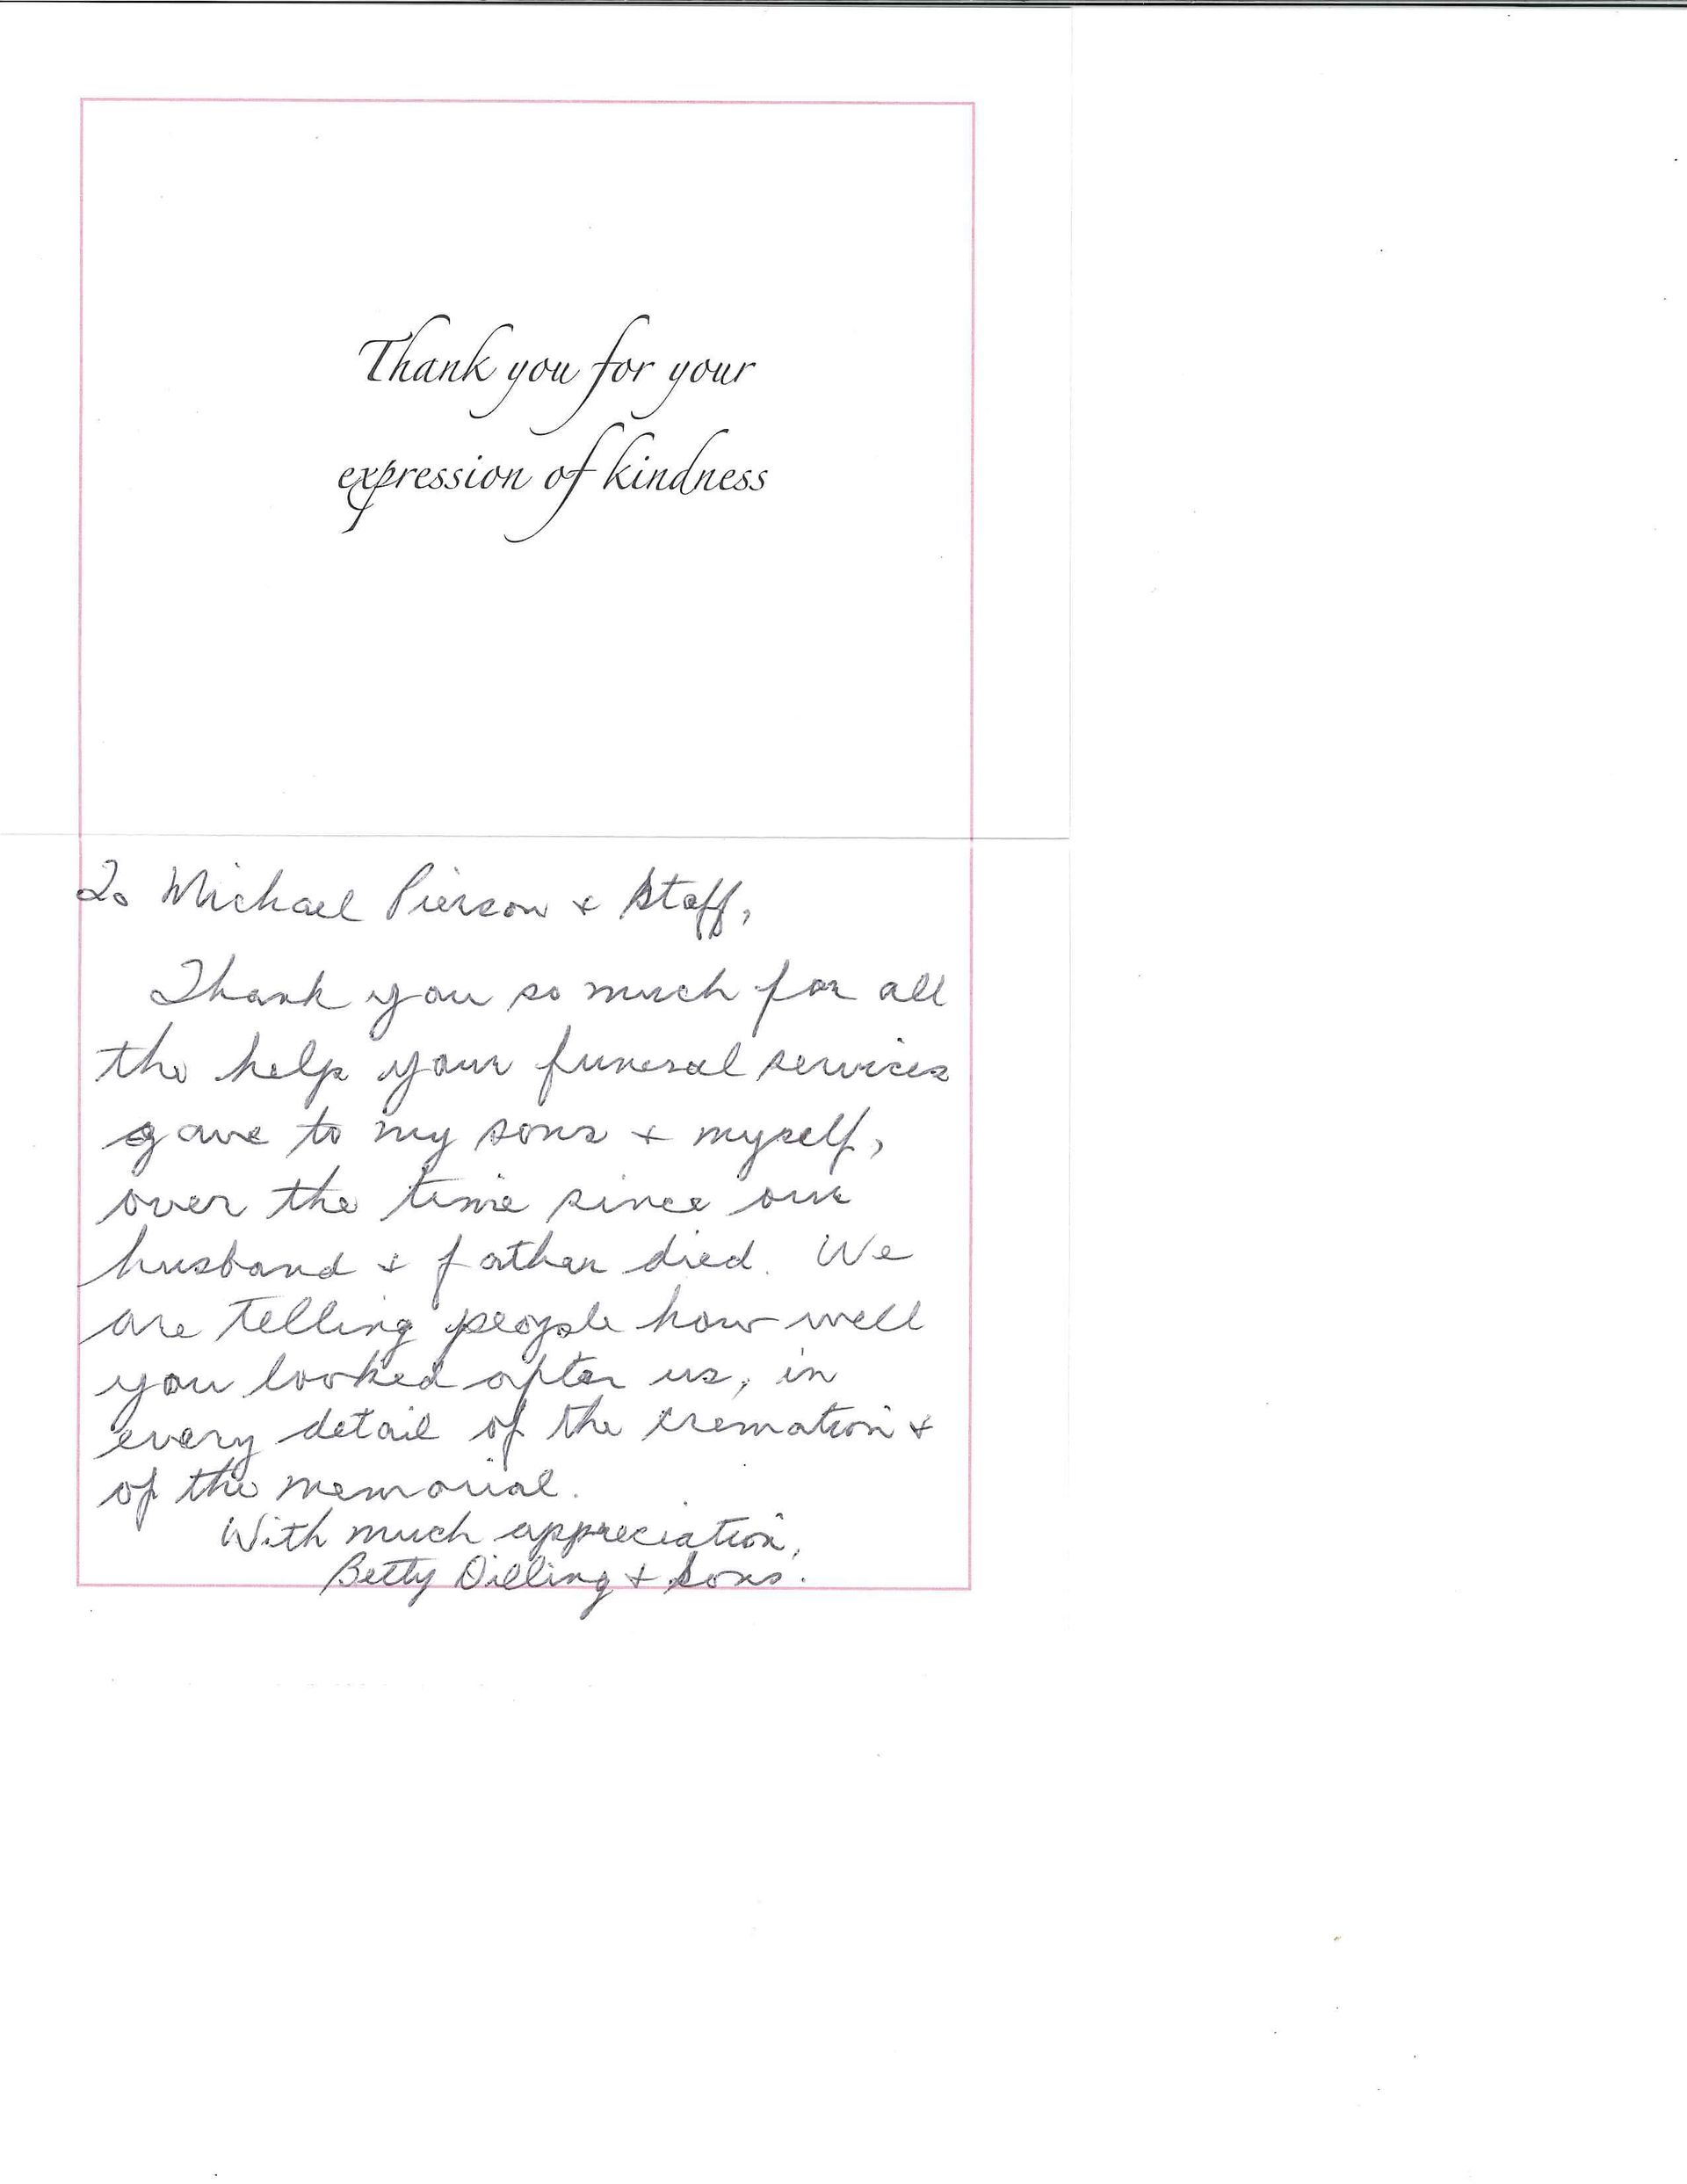 Thank you for your
expression of kindness
To Michael Pierson & Staff,
Thank you so much for all
the help your funeral services
gave to my sons & myself,
over the time since our
husband & father died. We
are telling people how well
you looked after us, in
every detail of the cremation &
of the memorial.
With much appreciation,
Betty Dilling & Sons.